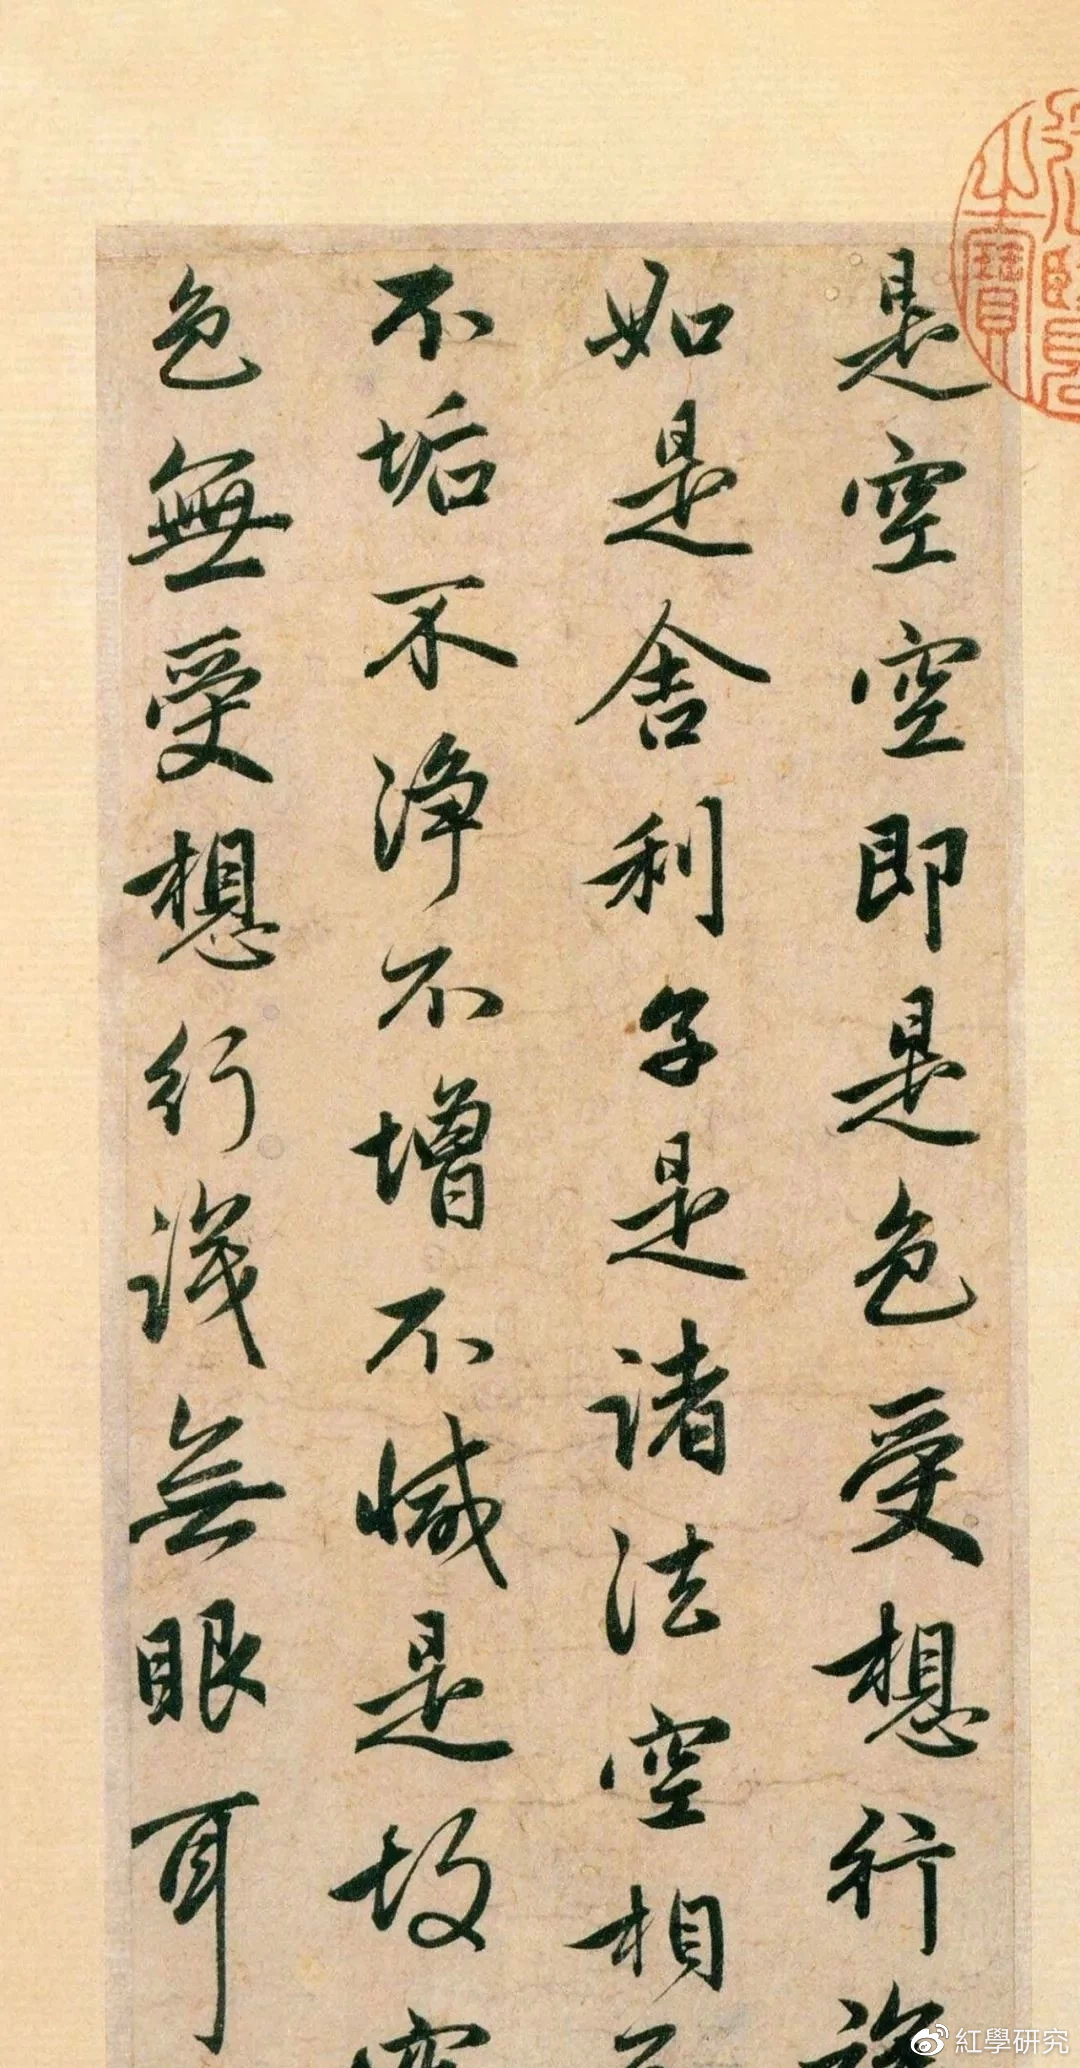 是空空即是色受想行識
如是舍利子是諸法空相不
不垢不淨不增不減是故空
色無受想行識無眼耳
之寶
紅學研究